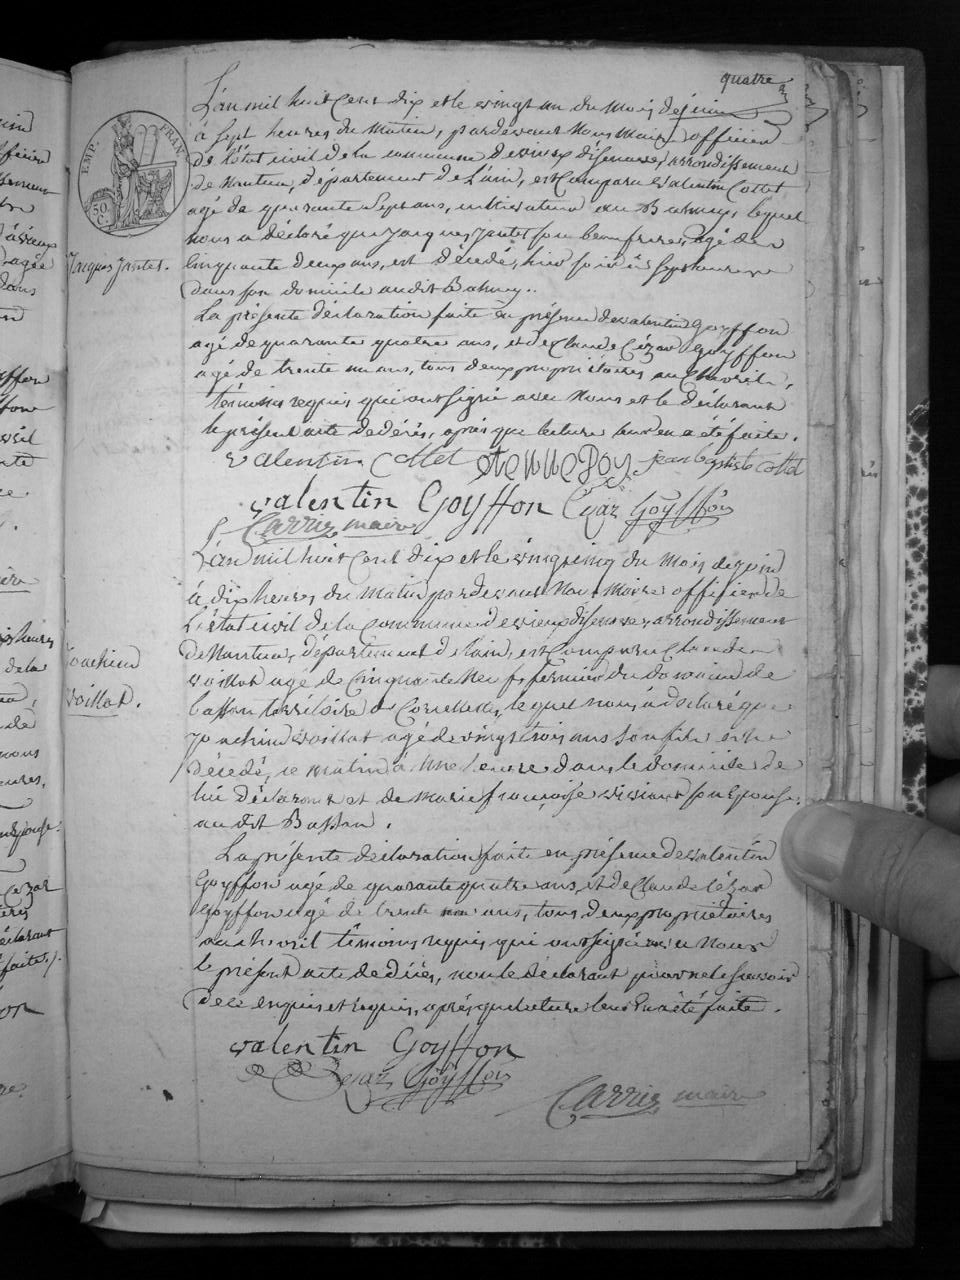 quatre
L'an mil huit Cent dix et le vingt un du mois de juin
à sept heures du matin, pardevant Nous maire officier
de l'état civil de la commune de vieux d'isenave, arrondissement
de Nantua, département de L'ain, est Comparu valentin Cottet
agé de quarante sept ans, cultivateur au Balmay, lequel
nous a déclaré que jacques jantet son beaufrere, agé de
Cinquante deux ans, est décédé, hier soir à sept heures
dans son domicile audit Balmay..
EMP. FRAN
50. C.
Jacques jantet.
La présente déclaration faite en présence de valentin goyffon
agé de quarante quatre ans, et de Claude Cézar Goyffon
agé de trente un ans, tous deux propriétaires au Chevril,
témoins requis qui ont signé avec Nous et le déclarant
le présent acte de décès, après que lecture leur en a été faite.
valentin Cottet jean baptiste Cottet
valentin Goyffon Cezar Goÿffon
Carrier maire
L'an mil huit Cent dix et le vingt cinq du mois de juin
à dix heures du matin pardevant Nous maire officier de
L'état civil de la Commune de vieux d'isenave, arrondissement
de Nantua, département de lain, est Comparu Claude
voillat agé de Cinquante Neuf, fermier du domaine de
bassan territoire de Corcellette, lequel nous a déclaré que
joachim voillat agé de vingt trois ans son fils est
décédé, ce matin à Une heure dans le domicile de
lui déclarant et de Marie françoise vivian son Epouse,
au dit Bassan.
joachim
voillat.
La présente déclaration faite en présence de valentin
Goyffon agé de quarante quatre ans, et de Claude Cézar
Goyffon agé de trente un ans, tous deux propriétaires
au chevril témoins requis qui ont signé avec Nous
le présent acte de décès, non le déclarant pour ne le savoir
de ce enquis et requis, après que lecture leur En a été faite.
valentin Goyffon
Cezar Goÿffon
Carrier maire